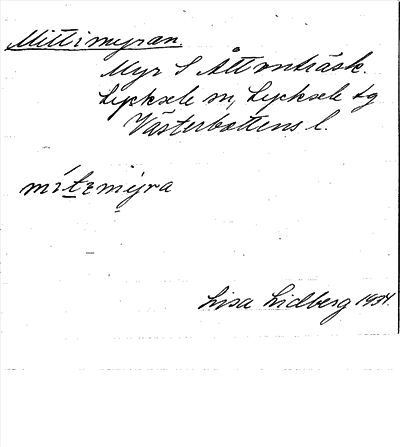 Mittimyran
Myr S Åttonträsk.
Lycksele sn, Lycksele tg
Västerbottens l.
mítɪmýra
Lisa Lidberg 1934.